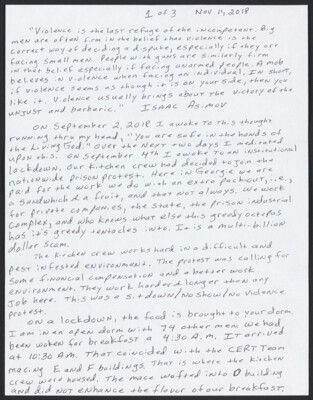 1 of 3 Nov 11, 2018
"Violence is the last refuge of the incompetent. Big
men are often firm in the belief that violence is the
correct way of deciding a dispute, especially if they are
facing small men. People with guns are similarly firm
in that belief especially if facing unarmed people. A mob
believes in violence when facing an individual. In short,
if violence seems as though it is on your side, then you
like it. Violence usually brings about the victory of the
unjust and barbaric." Isaac Asimov
On September 2, 2018 I awoke to this thought
running thru my head, "You are safe in the hands of
the Living God." Over the next two days I meditated
upon this. On September 4th I awoke to an institutional
lockdown. Our kitchen crew had decided to join the
nationwide prison protest. Here in Georgia we are
paid for the work we do with an extra packout, i.e.,
a sandwich & a fruit, and that not always. We work
for private companies, the State, the prison industrial
complex, and who knows what else this greedy octopus
has it's greedy tentacles into. It is a multi-billion
dollar scam.
The kitchen crew works hard in a difficult and
pest infested environment. The protest was calling for
some financial compensation and a better work
environment. They work harder & longer than any
job here. This was a sit down/No show/No violence
protest.
On a lockdown, the food is brought to your dorm.
I am in an open dorm with 74 other men. We had
been woken for breakfast @ 4:30 A.M. It arrived
at 10:30 A.M. That coincided with the CERT Team
macing E and F buildings. That is where the kitchen
crew were housed. The mace wafted into D building
and did not enhance the flavor of our breakfast.